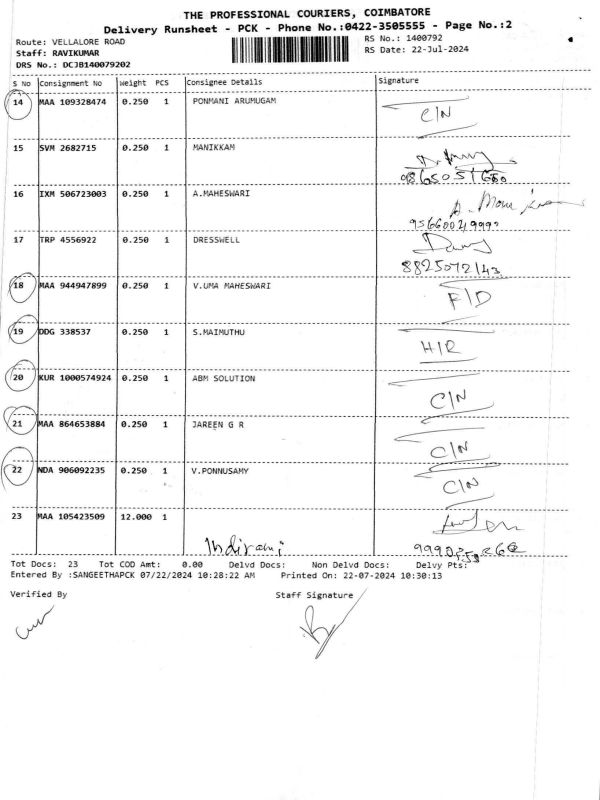 THE PROFESSIONAL COURIERS, COIMBATORE
Delivery Runsheet - PCK - Phone No.:0422-3505555 - Page No.:2
Route: VELLALORE ROAD
RS No.: 1400792
Staff: RAVIKUMAR
RS Date: 22-Jul-2024
DRS No.: DCJB140079202
S No Consignment No Weight PCS Consignee Details Signature
14 MAA 109328474 0.250 1 PONMANI ARUMUGAM
C/N
15 SVM 2682715 0.250 1 MANIKKAM
16 IXM 506723003 0.250 1 A.MAHESWARI
17 TRP 4556922 0.250 1 DRESSWELL
8825072143
18 MAA 944947899 0.250 1 V.UMA MAHESWARI
F/D
19 DDG 338537 0.250 1 S.MAIMUTHU
H/R
20 KUR 1000574924 0.250 1 ABM SOLUTION
C/N
21 MAA 864653884 0.250 1 JAREEN G R
C/N
22 NDA 906092235 0.250 1 V.PONNUSAMY
C/N
23 MAA 105423509 12.000 1
Indirani
Tot Docs: 23 Tot COD Amt: 0.00 Delvd Docs: Non Delvd Docs: Delvy Pts:
Entered By :SANGEETHAPCK 07/22/2024 10:28:22 AM Printed On: 22-07-2024 10:30:13
Verified By Staff Signature